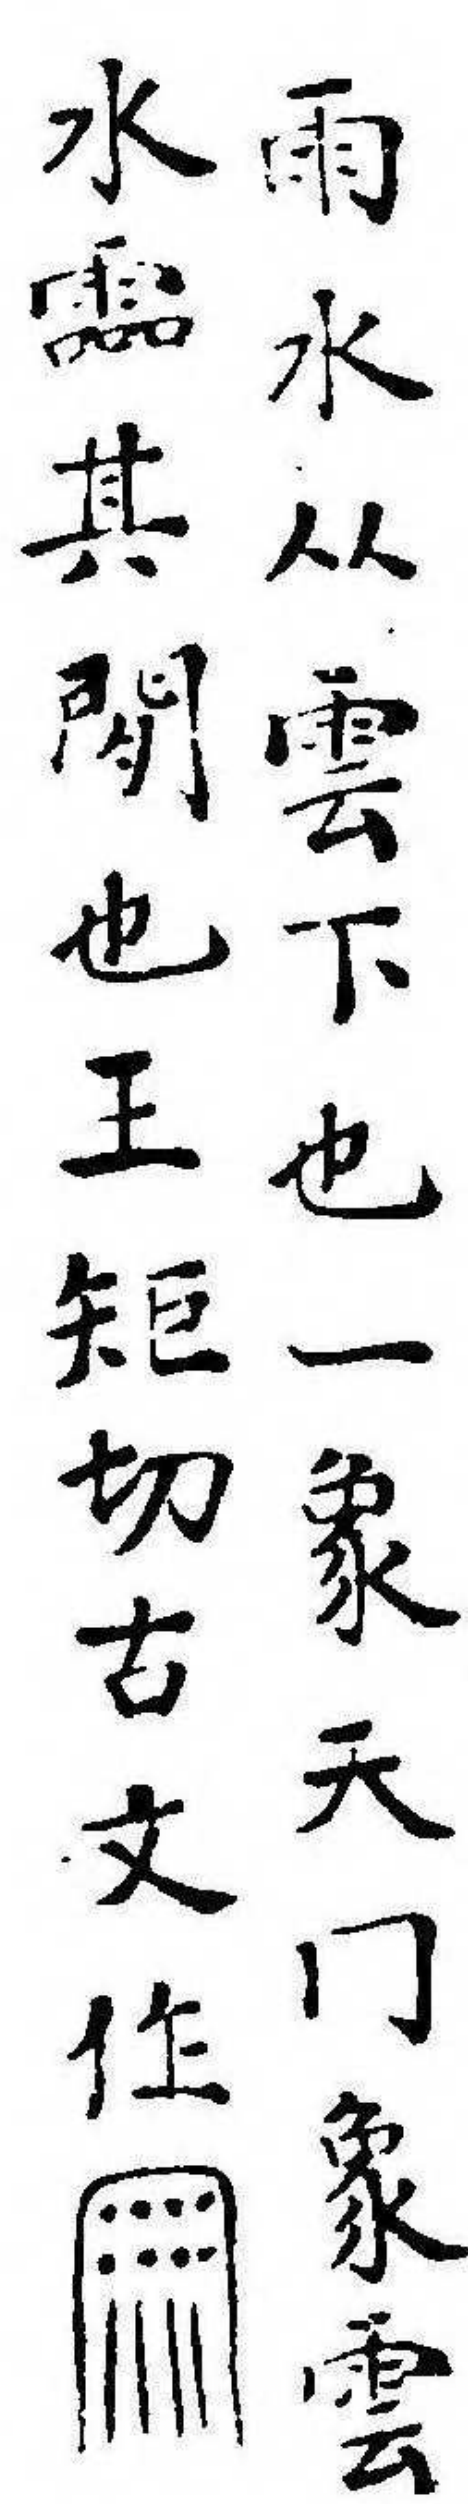 雨水从雲下也一象天冂象雲
水霝其閒也王矩切古文作𠕲